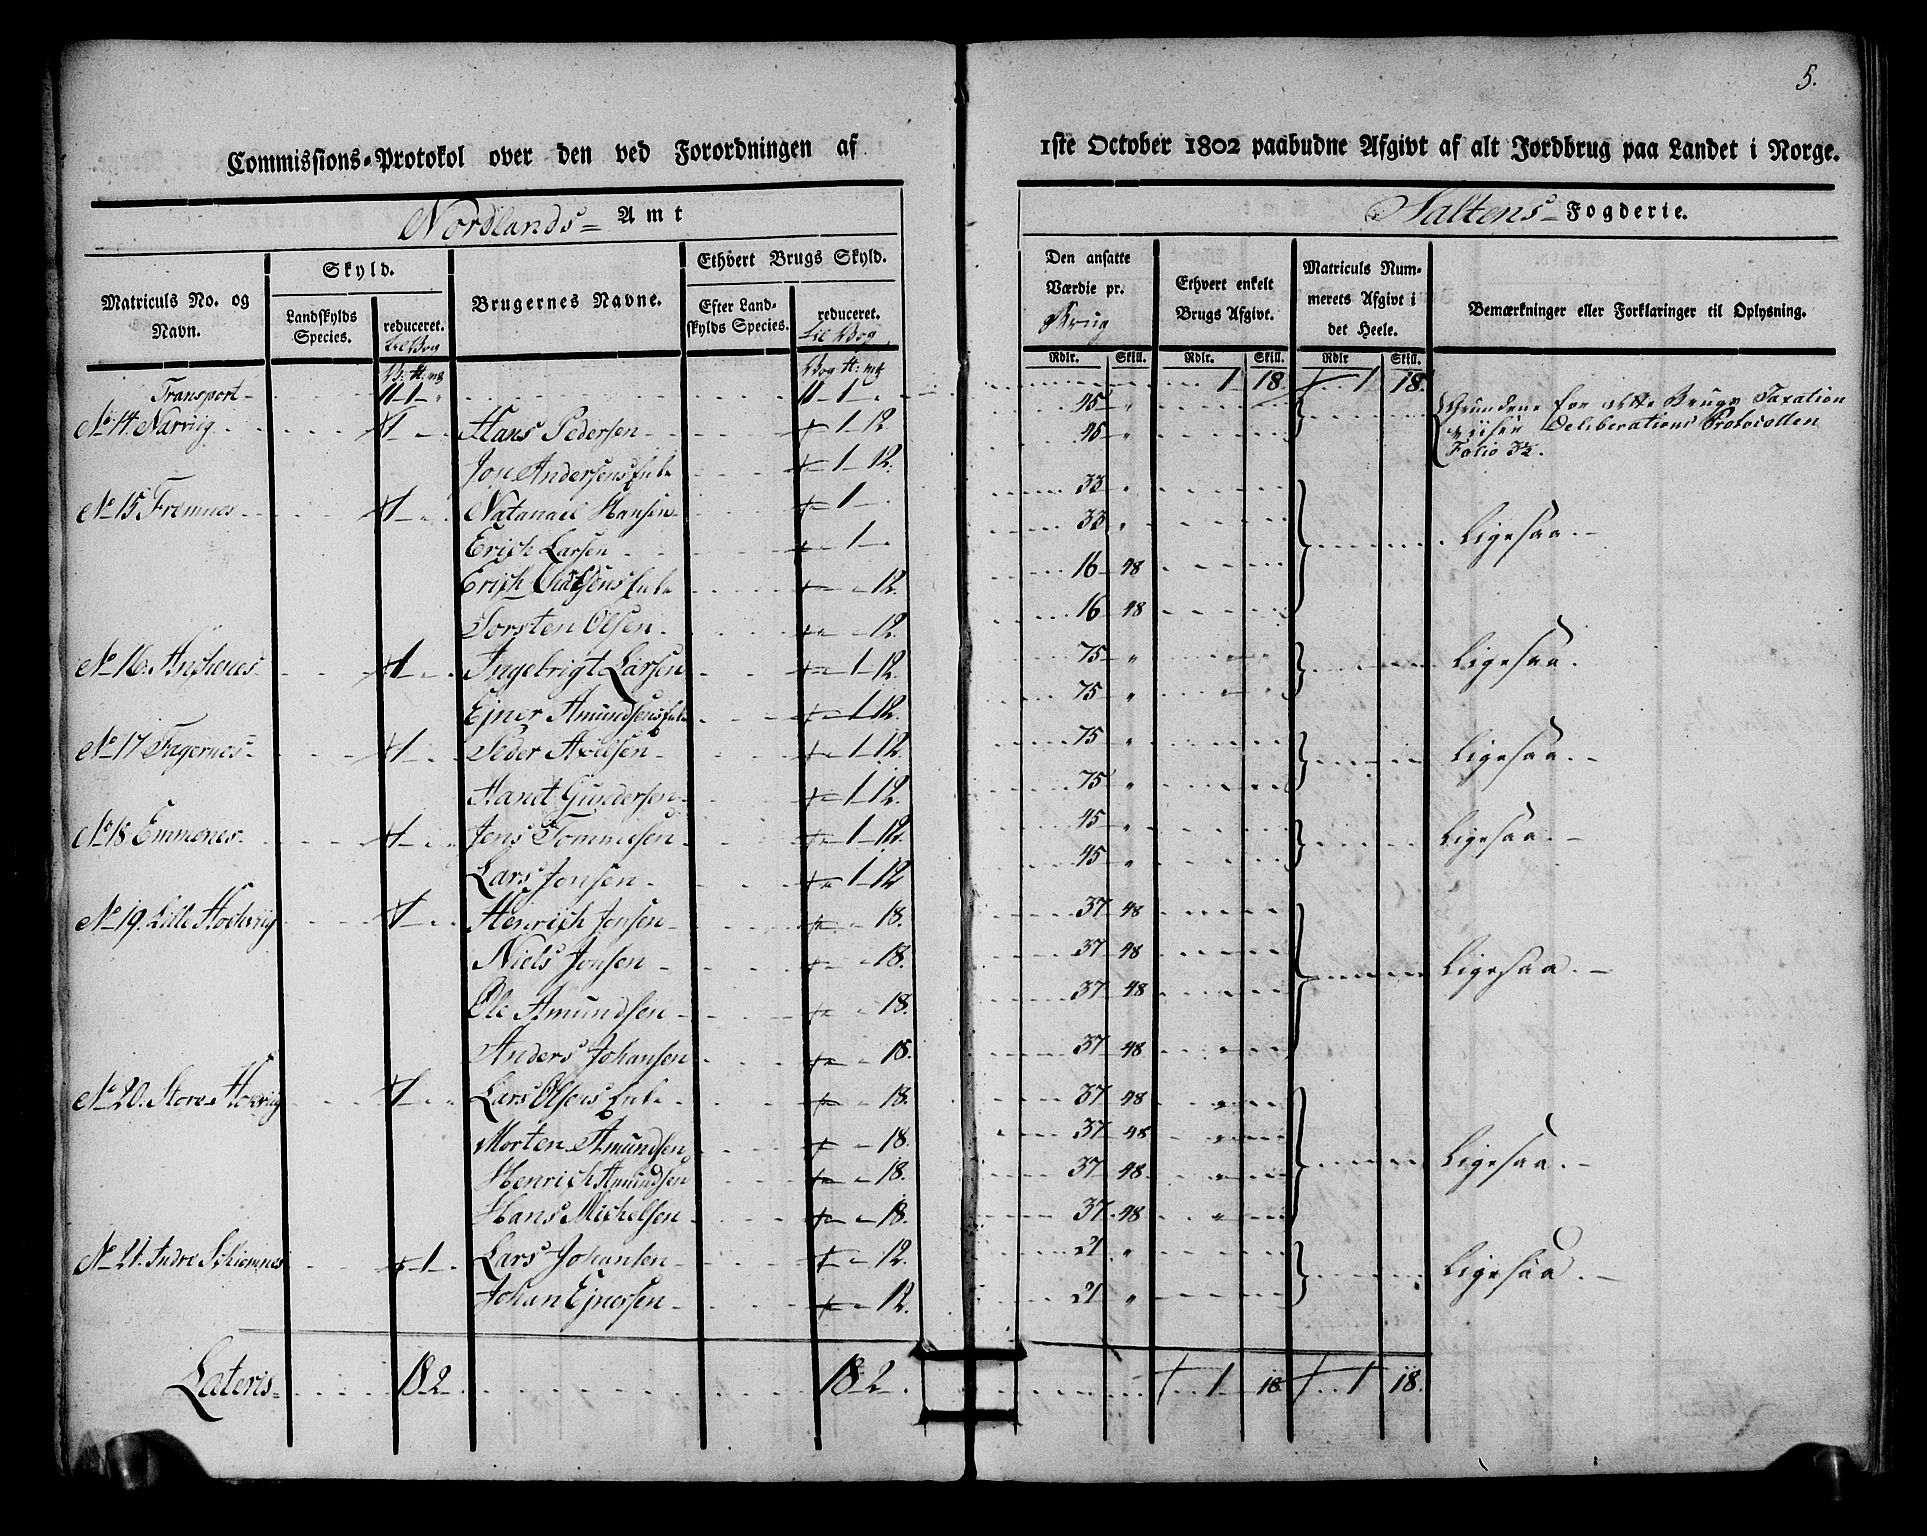 5.
Commissions-Protokol over den ved Forordningen af 1ste October 1802 paabudne Afgivt af alt Jordbrug paa Landet i Norge.
Nordlands= Amt Saltens= Fogderie.
Matriculs No. og Navn. Skyld. Landskylds Species. reduceret. til Bog Brugernes Navne. Ethvert Brugs Skyld. Efter Landskylds Species. reduceret. til Bog Den ansatte Værdie pr. Brug Ethvert enkelt Brugs Afgivt. Matriculs Nummerets Afgivt i det Heele. Bemærkninger eller Forklaringer til Oplysning.
Rdlr. Skill. Rdlr. Skill. Rdlr Skill.
Transport 11 1 " 11 1 " 1 18 1 18.
No 14 Narviig 1 Hans Pedersen 1 12 45 " Grundene for dette Brugs Taxation viiser Deliberations Protocollen Folio
Jon Andersens Enke 1 12. 45 "
No 15 Fremnes 1 Natanael Hansen 1 33 " Ligesaa.
Erich Larsen 1 33 "
Erich Enke 12. 16 48
Torsten Olsen 12. 16 48
No 16. Anchenes 1 Ingebrigt Larsen 1 12. 75 " Ligesaa.
Ejner Amundsens Enke 1 12. 75 "
No 17 Fagernes 1 Peder Axelsen 1 12. 75 " Ligesaa.
Gundersen 1 12. 75 "
No 18 Emmenes 1 Jens Tommesen 1 12. 45 " Ligesaa.
Lars Jonsen 1 12 45 "
No 19. Lille Hochviig 1 Henrich Jonsen 18. 37 48 Ligesaa.
Niels Jonsen 18. 37 48
Ole Amundsen 18. 37 48
Anders Johansen 18. 37 48
No 20. Store Hocviig 1 Lars Olsens Enke 18. 37 48 Ligesaa.
Morten Amundsen 18. 37 48
Henrich Amundsen 18. 37 48
Hans Michelsen 18. 37 48
No 21. Indre Schiemnes 1 Lars Johansen 12. 21 " Ligesaa.
Johan Ejnersen 12. 21 "
Lateris 18 2 18 2 1 18 1 18.